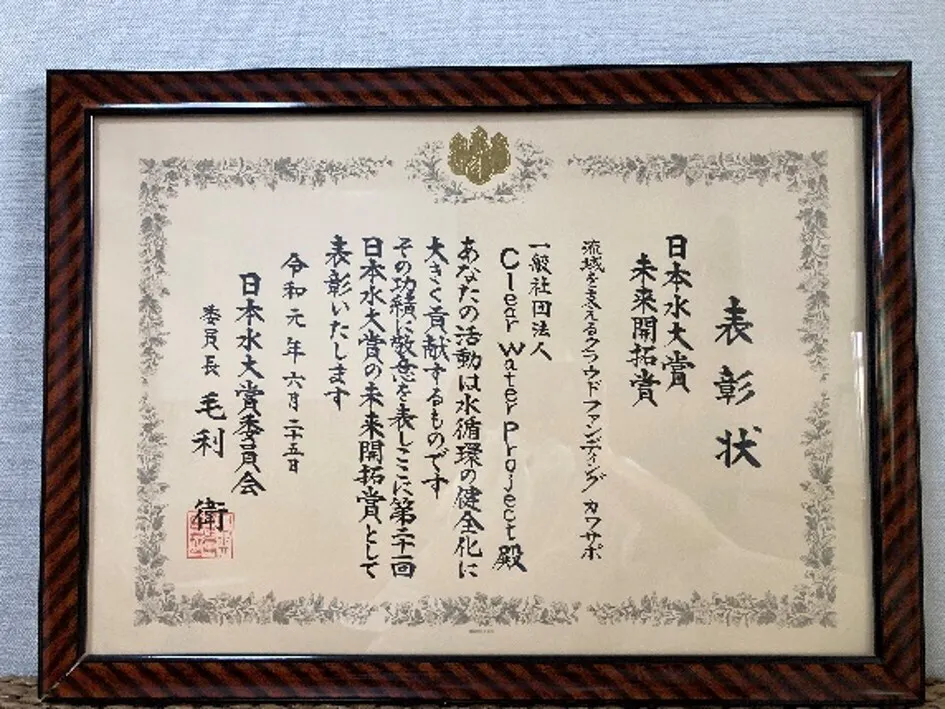 表彰状
日本水大賞
未来開拓賞
流域を支えるクラウドファンディング カワサポ
一般社団法人
Clear Water Project 殿
あなたの活動は水循環の健全化に
大きく貢献するものです
その功績に敬意を表しここに第二十一回
日本水大賞の未来開拓賞として
表彰いたします
令和元年六月二十五日
日本水大賞委員会
委員長 毛利 衛